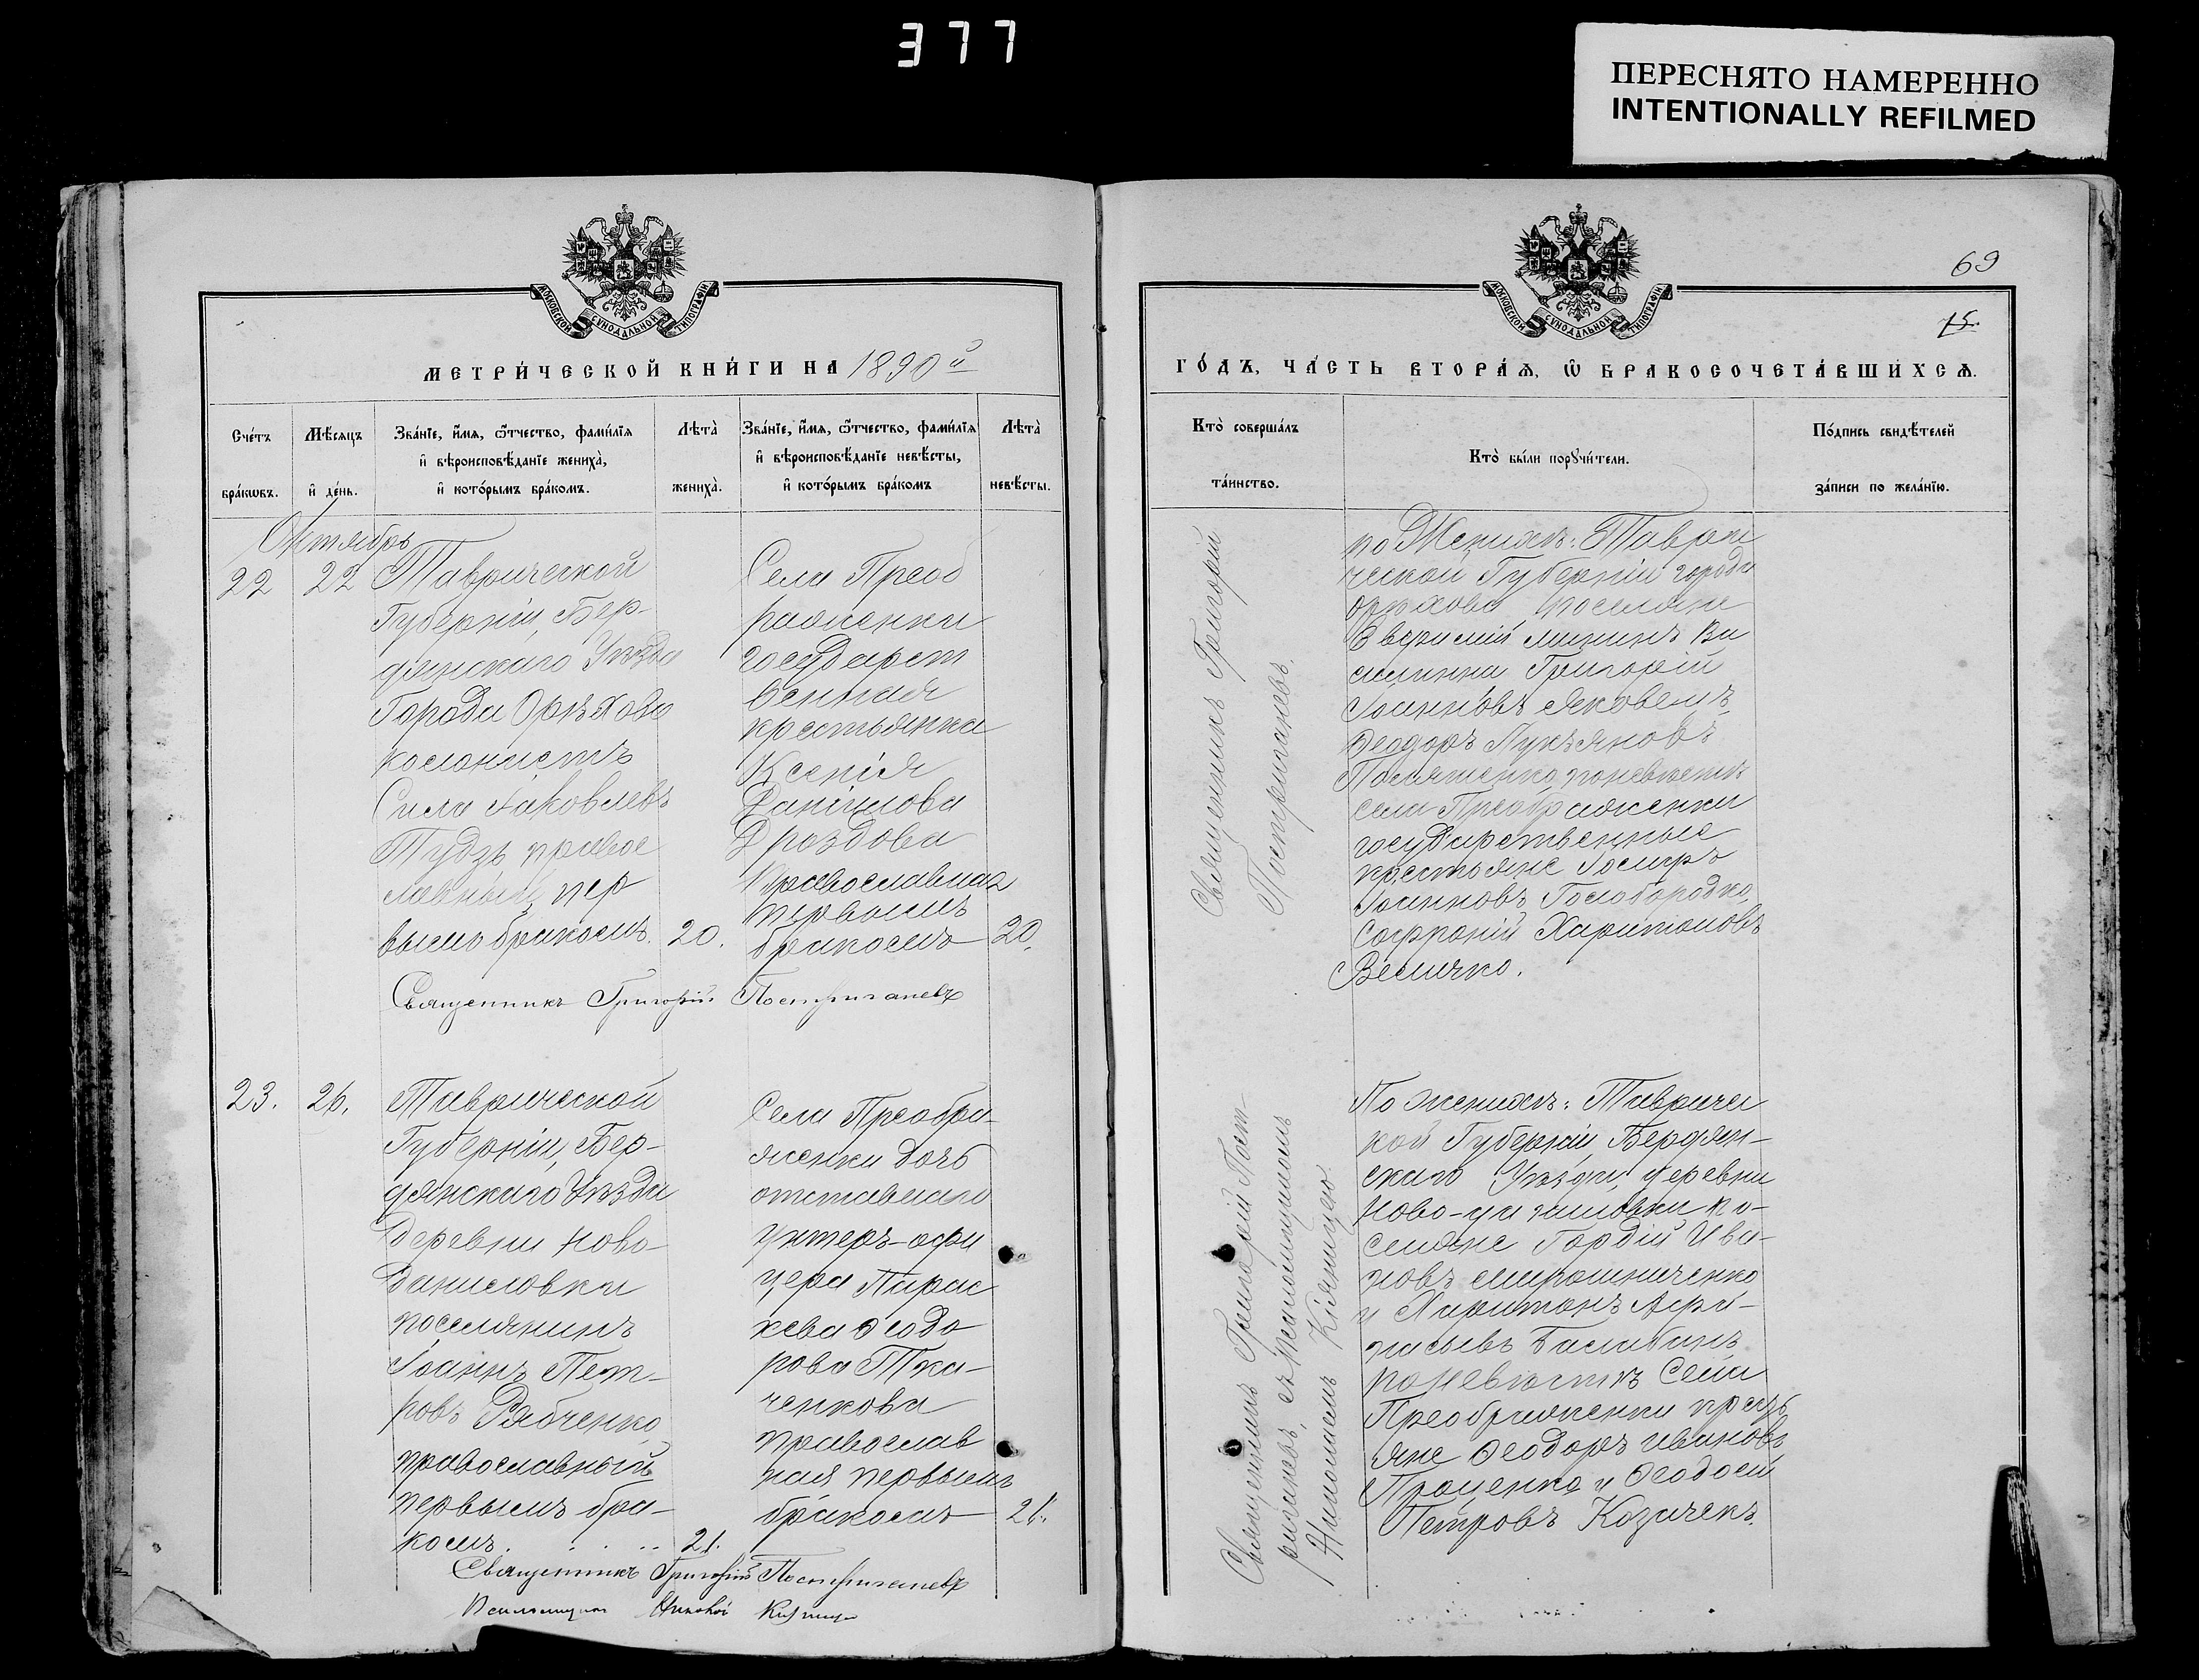 377
ПЕРЕСНЯТО НАМЕРЕННО
INTENTIONALLY REFILMED
МОСКОВСКОЙ СѴНОДАЛЬНОЙ ТИПОГРАФІИ
МЕТРИ́ЧЕСКОЙ КНИ́ГИ НА 1890й
Сче́тъ
бра́кѡвъ.
Мѣ́сяцъ
и҆ де́нь.
Зва́нїе, и҆́мѧ, ѻ҆́тчество, фами́лїѧ
и҆ вѣроисповѣ́данїе жениха̀,
и҆ кото́рымъ бра́комъ.
Лѣта̀
жениха̀.
Зва́нїе, и҆́мѧ, ѻ҆́тчество, фами́лїѧ
и҆ вѣроисповѣ́данїе невѣ́сты,
и҆ кото́рымъ бра́комъ
Лѣта̀
невѣ́сты.
Октябрь
22
22
Таврической
Губерніи, Бер-
дянскаго Уѣзда
Города Орѣхова
Сила Іаковлевъ
Гудзь правос
лавный, пер
вымъ бракомъ.
20.
Села Преоб
раженки
государст
венная
крестьянка
Ксенія
Даніилова
Дроздова
Православная
первымъ
бракомъ
20.
Священникъ Григорій Постригачевъ
23.
26.
Таврической
Губерніи, Бер-
дянскаго Уѣзда
Деревни Ново-
Даниловки
поселянинъ
Іоаннъ Пет-
ровъ Рябченко,
православный
первымъ бра-
комъ.
21.
Села Преобра-
женки дочь
отставнаго
унтеръ-офи
цера Парас
кева Ѳеодо
рова Тка-
ченкова
православ
ная первымъ
бракомъ
21.
Священникъ Григорій Постригачевъ
69
15.
МОСКОВСКОЙ СѴНОДАЛЬНОЙ ТИПОГРАФІИ
ГО́ДЪ, ЧА́СТЬ ВТОРА́Ѧ, Ѡ҆ БРАКОСОЧЕТА́ВШИХСѦ.
Кто̀ соверша́лъ
та́инство.
Кто̀ бы́ли порꙋчи́тели.
По́дпись свидѣ́телей
за́писи по жела́нїю.
Священникъ Григорій
Постригачевъ.
по Женихѣ: Таври
ческой Губерніи города
Орѣхова поселяне
Григорій
Іоанновъ Яковецъ,
Ѳеодоръ Лукьяновъ
по невѣстѣ
села Преображенки
государственные
крестьяне
Іоанновъ Голобородко,
Софроній Харитоновъ
Величко.
Священникъ Григорій Пост-
ригачевъ, съ псаломщикомъ
По женихѣ: Тавричес
кой Губерніи, Бердян-
скаго Уѣзда, деревни
Ново-Даниловки по-
селяне Гордій Ива-
новъ Мирошниченко
и Харитонъ Аѳа-
насьевъ Балабанъ
по невѣстѣ Села
Преображенки кресть
яне Ѳеодоръ Ивановъ
Проценко и Ѳеодосій
Петровъ Козачекъ.